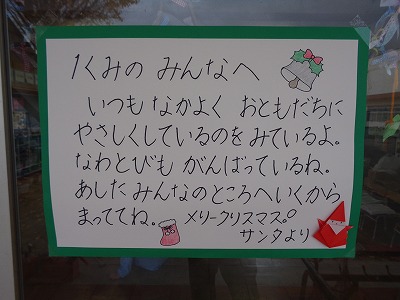 1くみの みんなへ
いつも なかよく おともだちに
やさしくしているのを みているよ。
なわとびも がんばっているね。
あした みんなのところへ いくから
まっててね。 メリークリスマス。
サンタより